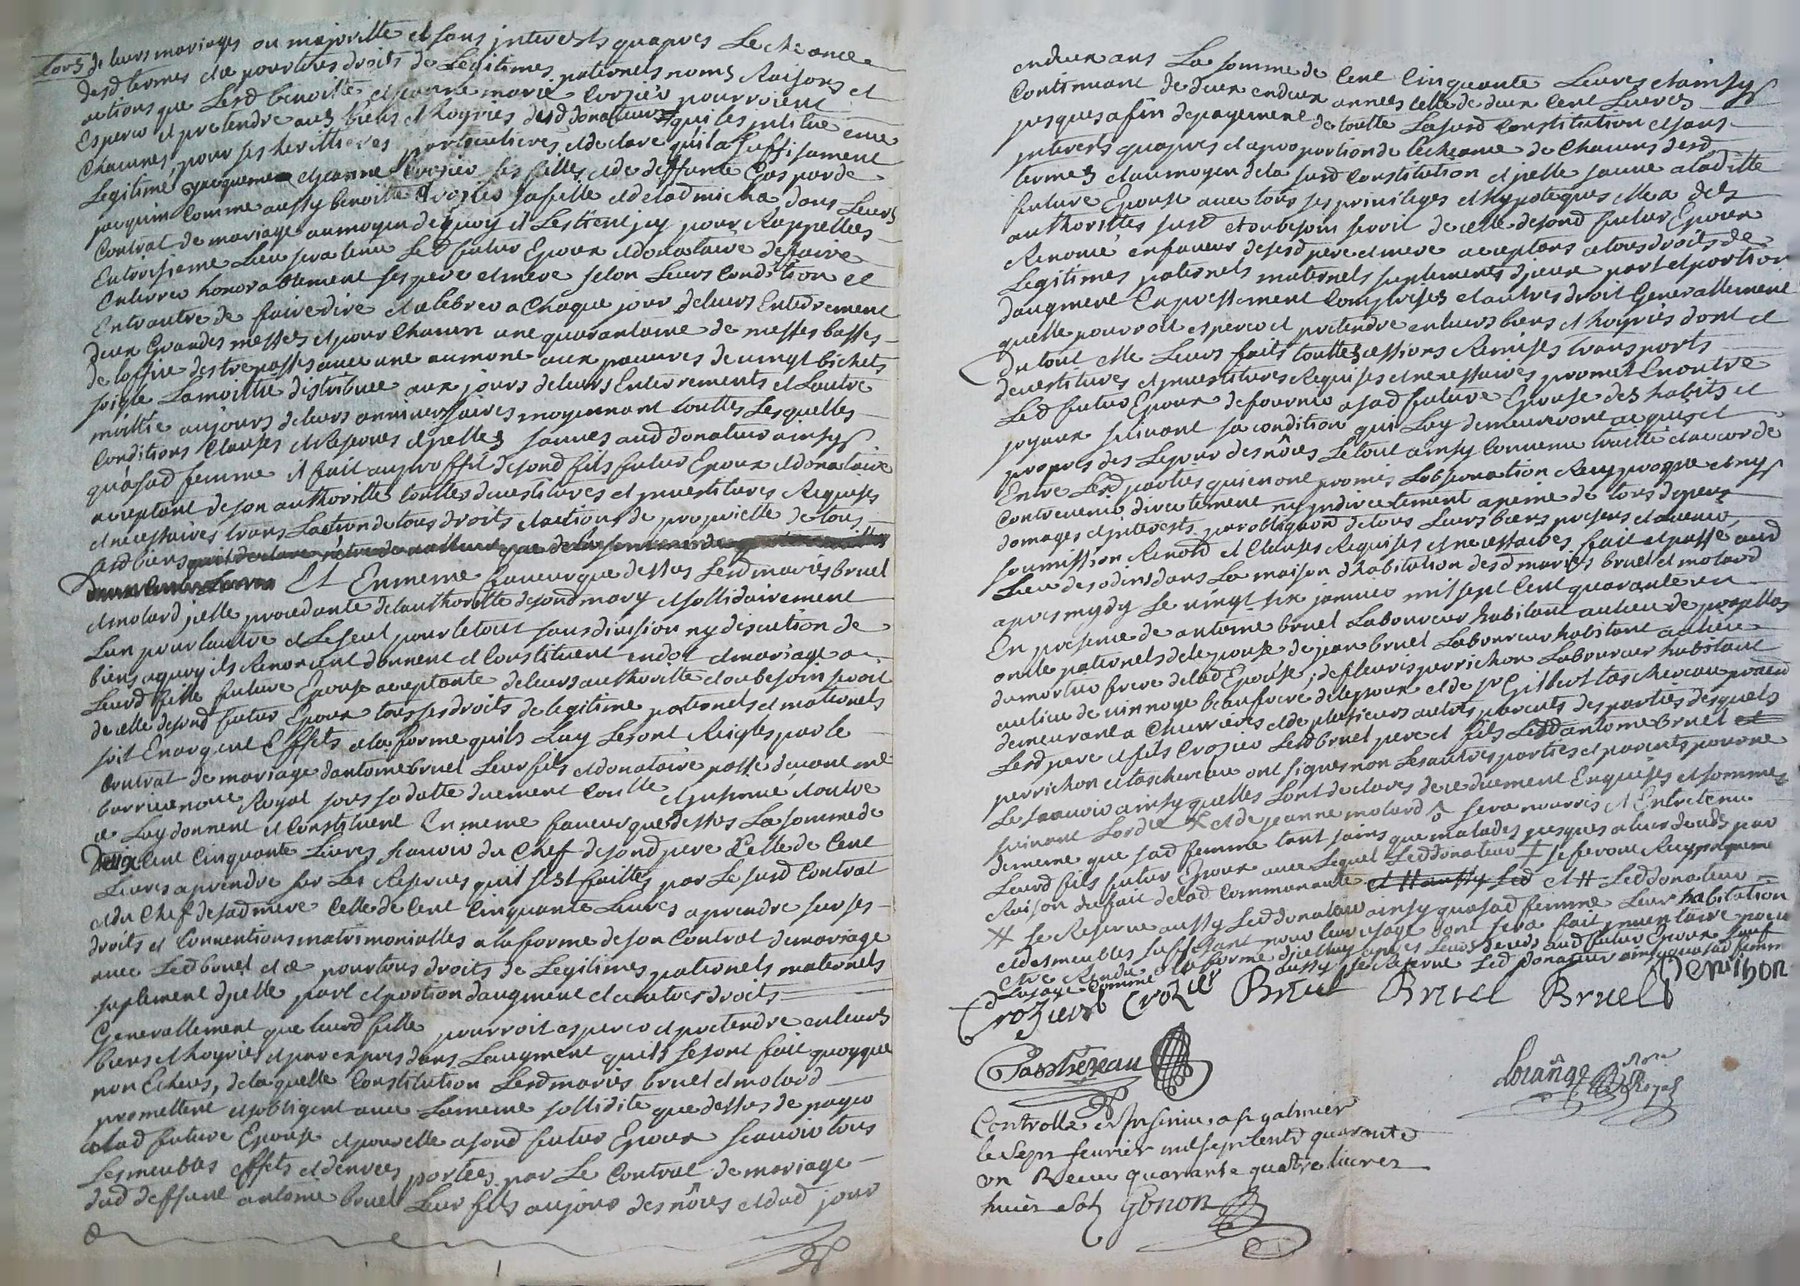 Lors de leurs mariages ou majoritte et sans interests quapres Lecheance
desd termes et ce pour tous droits de Legitimes paternels noms Raisons et
actions que Lesd benoitte et jeanne marie Crozier pourroient
Esperer et pretendre aux biens et hoyries desd donateurs qui les institue
Chacunes pour ses herittieres particulieres et declare quil a suffisament
Legitimé et jeanne Crozier ses filles et de deffunte Gasparde
jacquin Comme aussy benoitte Crozier sa fille et delad micha dans Leurs
Contrat de mariage au moyen dequoy il Les tient jcy pour Rappellees
Entroisieme Lieu sera tenu Led futur Epoux et donataire de faire
Enterrer honorablement ses pere et mere selon Leurs Condition et
Entrautre de faire dire et celebrer a Chaque jour de leurs Enterrement
deux Grandes messes et pour Chacun une quarantaine de messes basses
de loffice des trepasses avec une aumone aux pauvres de vingt bichets
seigle Lamoittie distribuee aux jours de leurs Enterrements et Lautre
moittie aux jours de leurs anniversaires moyennant touttes Lesquelles
Conditions Clauses et Reserves et jcelles sauves aud donateur ainsy
qua sad femme Il fait au proffit desond fils futur Epoux et donataire
acceptant de son authoritte touttes devestitures et investitures Requises
et necessaires translaction de tous droits et actions de proprietté de tous
sesd biens
Et Enmeme faveur que dessus Lesd mariés bruel
et motard jcelle procedante de lauthoritte desond mary et sollidairement
Lun pour lautre et Leseul pour letout sans division ny discution de
biens aquoy ils Renoncent donnent et Constituent en dot et mariage a
Leurd fille future Epouse acceptante de leurs authoritte et aubesoin seroit
de celle desond futur Epoux tous ses droits de legitime paternels et maternels
soit Enargent Effets a la forme quils Luy Lesont Reigles par le
Contrat de mariage dantoine bruel Leur fils et donataire passé devant me
notre Royal sous sa datte duement Contlle et insinué et outre
ce Luy donnent et Constituent En meme faveur que dessus La somme de
Deux Cent Cinquante Livres scavoir du Chef desond pere Celle de Cent
Livres a prendre sur Les Reserves quil sest faittes par Le susd Contrat
et du Chef desad mere Celle de Cent Cinquante Livres a prendre sur ses
droits et Conventions matrimonialles a la forme de son Contrat de mariage
avec Led bruel et ce pour tous droits de Legitimes paternels maternels
suplement djcelle part et portion daugment et autres droits
Generallement que leurd fille pourroit esperer et pretendre en leurs
biens et hoyries et par expres dans Laugment quils se sont fait quoyque
non Echeus, de laquelle Constitution Lesd mariés bruel et motard
promettent et sobligent avec Lameme solliditte que dessus de payer
alad future Epouse et pour elle a sond futur Epoux scavoir tous
Les meubles effets et denrees portees par Le Contrat de mariage
dud deffunt antoine bruel Leur fils aujour des nôces et dud jour
en deux ans La somme de Cent Cinquante Livres et ainsy
Continuant de deux endeux années Celle de deux Cent Livres
jusques a fin de payement de toutte Lasusd Constitution et sans
interests quapres et a proportion de Lecheance de Chacuns desd
termes et aumoyen dela susd Constitution et jcelle sauve a ladite
future Epouse avec tous ses privileges et hypoteques Elle a des
authorittes susd et aubesoin seroit de celle desond futur Epoux
Renoncé enfaveur de sesd pere et mere acceptans atous droits de
Legitimes paternels maternels suplements djceux part et portion
daugment Expressement Comprises et autres droit Generallement
quelle pourroit esperer et pretendre en leurs biens et hoyries dont et
Du tout Elle Leurs faits touttes cessions Remises transports
devestitures et investitures Requises et necessaires promet Enoutre
Led futur Epoux de fournir a sad future Epouse des habits et
joyaux suivant sa condition qui Luy demeureront acquis et
propres des Lejour des nôces Letout ainsy Convenu traitté et accordé
Entre Lesd parties qui en ont promis Lobservation Reciproque et ny
Contrevenir directement ny indirectement a peine de tous depens
domages et interests par obligaôn de tous Leurs biens presens et avenir
soumission Renoôn et Clauses Requises et necessaires fait et passé aud
Lieu des odins dans La maison dhabitation desd mariés bruel et motard
apres mydy Le vingt six janvier mil sept Cent quarante un
En presence de antoine bruel Laboureur habitant au lieu de
oncle paternels delepouse de jean bruel Laboureur habitant au lieu
du mortier frere delad Epouse, de fleurs perrichon Laboureur habitant
au lieu de vinnoge beaufrere delepoux et de sr Gilbert tachereau praticien
demeurant a Chevrieres et de plusieurs autres parents des parties desquels
Lesd pere et fils Crozier Lesd bruel pere et fils Led antoine bruel
perrichon et tachereau ont signes non Les autres parties et parents pour ne
Le scavoir ainsy quelles Lont declaré de ce duement Enquises et sommes
suivant Lordce et de jeanne motard sera nourris et Entretenu
demême que sad femme tant sains que malades jusques a leur deceds par
Leurd fils futur Epoux avec Lequel Led donateur se feront Reciproquement
Raison du fait delad Communaute et # Led donateur
# se Reserve aussy Led donateur ainsy qua sad femme Leur habitation
et des meubles suffisant pour leur usage dont sera fait inventaire pour
etre Rendu a la forme djcelluy apres Leurs deceds aud futur Epoux sauf
Lusage Comme aussy se Reserve Led donateur ainsy qua sad femme
Crozier Crozier Bruel Bruel Bruel Perrichon
Tachereau
Lorange notre Royal
Controllé et Insinué a st galmier
le sept fevrier mil sept cents quarante
un Receu quarante quatre livres
huict sols Gonon